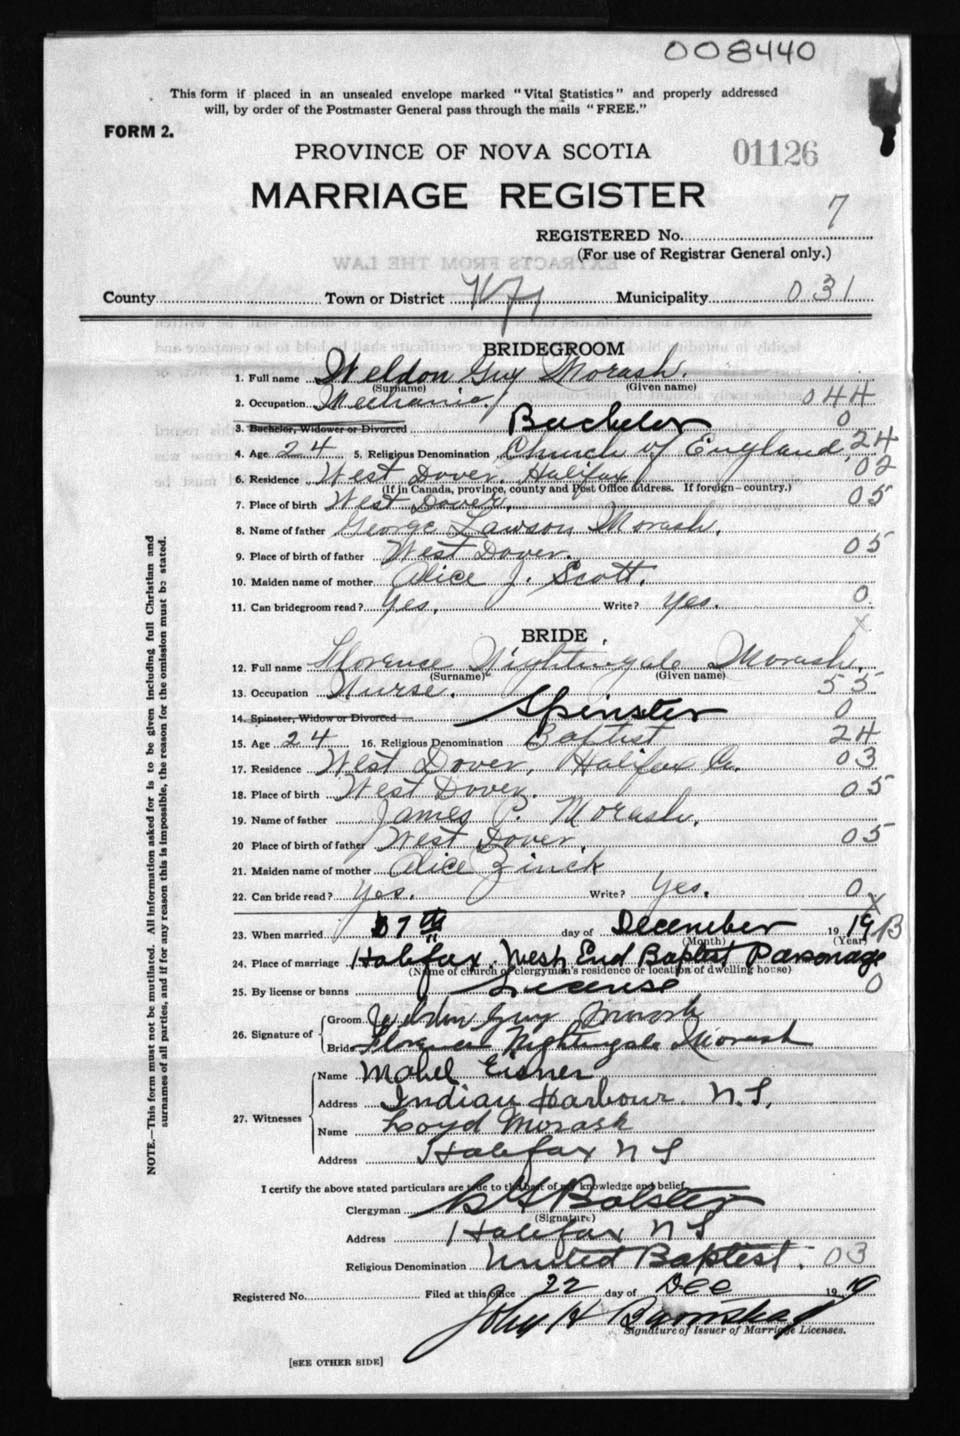 008440
This form if placed in an unsealed envelope marked "Vital Statistics" and properly addressed
will, by order of the Postmaster General pass through the mails "FREE."
FORM 2.
PROVINCE OF NOVA SCOTIA
01126
MARRIAGE REGISTER
REGISTERED No. 7
(For use of Registrar General only.)
EXTRACTS FROM THE LAW
County Town or District Hfx Municipality 031
BRIDEGROOM
1. Full name Weldon Guy Morash.
(Surname) (Given name)
2. Occupation Mechanic. 044
3. Bachelor, Widower or Divorced Bachelor 0
4. Age 24 5. Religious Denomination Church of England. 24
6. Residence West Dover. Halifax 02
(If in Canada, province, county and Post Office address. If foreign—country.)
7. Place of birth West Dover. 05
8. Name of father George Lawson Morash.
9. Place of birth of father West Dover. 05
10. Maiden name of mother Alice J. Scott.
11. Can bridegroom read? Yes. Write? Yes. 0
x
BRIDE
12. Full name Florence Nightingale Morash.
(Surname) (Given name)
13. Occupation Nurse. 55
14. Spinster, Widow or Divorced Spinster 0
15. Age 24 16. Religious Denomination Baptist 24
17. Residence West Dover, Halifax Co. 03
18. Place of birth West Dover. 05
19. Name of father James P. Morash.
20 Place of birth of father West Dover. 05
21. Maiden name of mother Alice Zinck
22. Can bride read? Yes. Write? Yes. 0
x
23. When married 17th day of December 19 19
(Month) (Year)
24. Place of marriage Halifax, West End Baptist Parsonage
(Name of church or clergyman's residence or location of dwelling house)
25. By license or banns License 0
26. Signature of Groom Weldon Guy Morash
Bride Florence Nightingale Morash
27. Witnesses Name Mabel Eisner
Address Indian Harbour N.S.
Name Loyd Morash
Address Halifax N S
I certify the above stated particulars are true to the best of my knowledge and belief.
Clergyman Bolster
(Signature)
Address Halifax N S
Religious Denomination United Baptist. 03
Registered No. Filed at this office 22 day of Dec 19 19
John H Barnstead
Signature of Issuer of Marriage Licenses.
[SEE OTHER SIDE]
NOTE.—This form must not be mutilated. All information asked for is to be given including full Christian and
surnames of all parties, and if for any reason this is impossible, the reason for the omission must be stated.